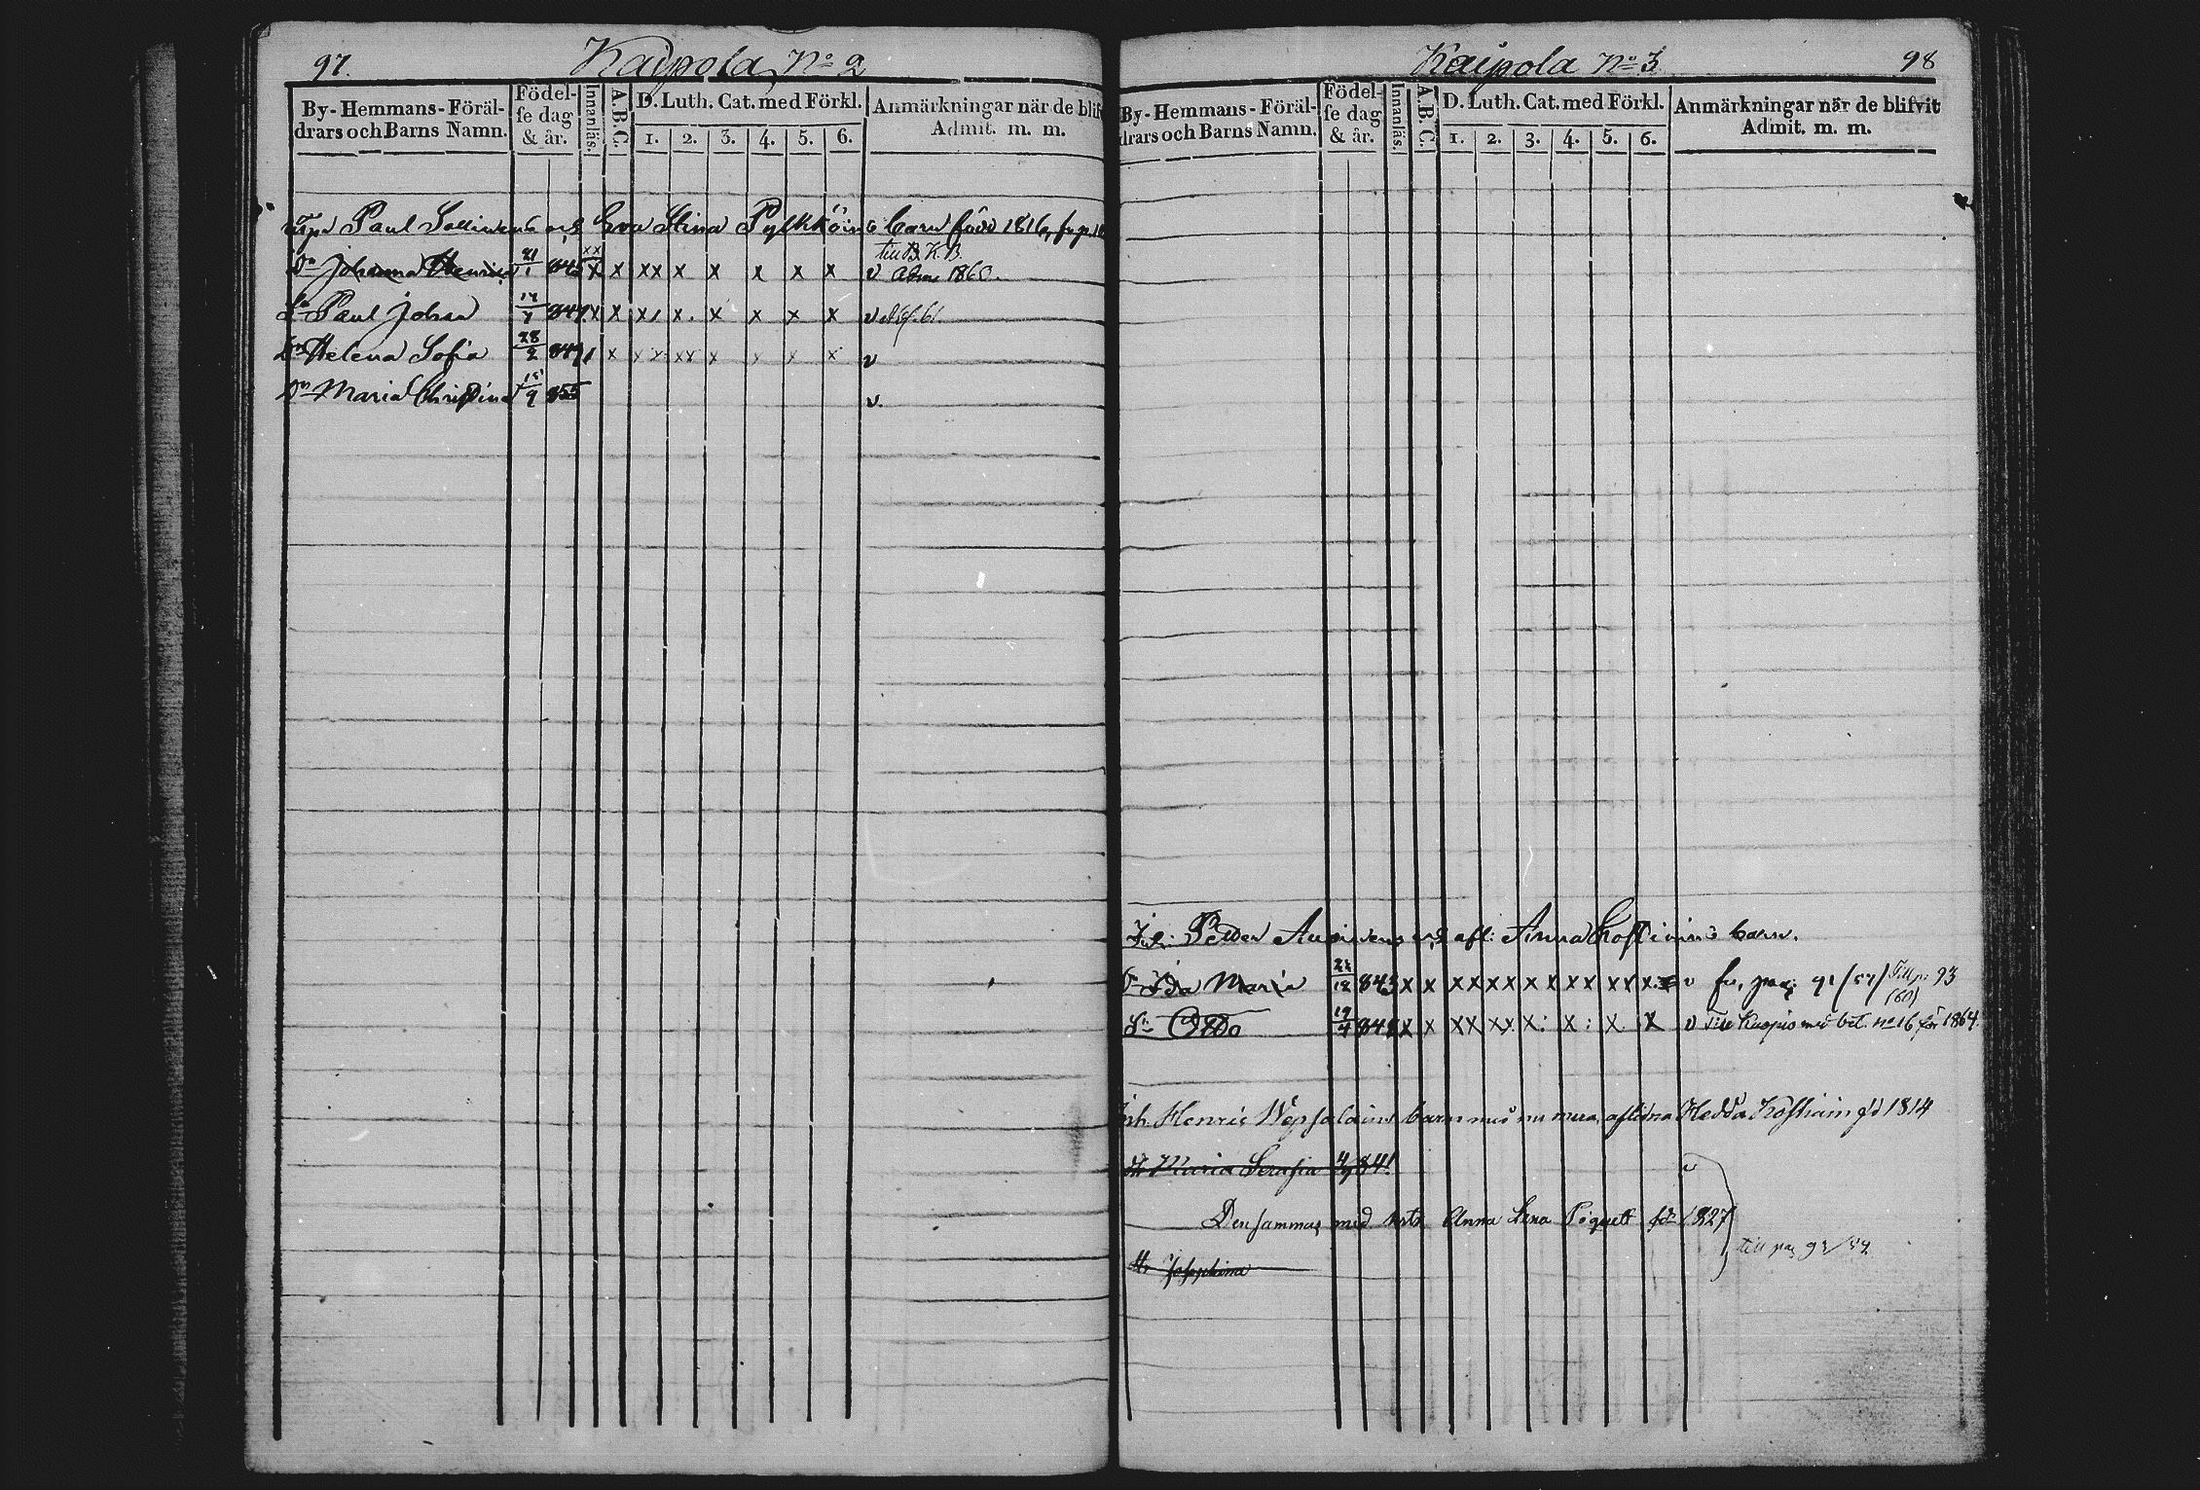 97.
Kaipola No 2
By- Hemmans- Föräl-
drars och Barns Namn.
Födel-
se dag
& år.
Innanläs.
A.B.C.
D. Luth. Cat. med Förkl.
1. 2. 3. 4. 5. 6.
Anmärkningar när de blifv
Admit. m. m.
Paul och Eva Stina barn 1816
till B. K. B.
Dn Johanna Henrica 21/1 845 x x x x xx x x x x x v Adm 1860.
Sn Paul Johan 847 x x x x x x x x v
Dn Helena Sofia 28/2 849 x x x xx x x x x v
Dn Maria Christina 15/9 855 v.
98
Kaipola No 3
By- Hemmans- Föräl-
drars och Barns Namn.
Födel-
se dag
& år.
Innanläs.
A.B.C.
D. Luth. Cat. med Förkl.
1. 2. 3. 4. 5. 6.
Anmärkningar när de blifvit
Admit. m. m.
Petter och afl: Anna barn.
Dn Ida Maria 843 x x xx xx x x x x xx x v fr. pag. 91/57/ Till p: 93
(60)
Sn Otto 19/4 848 x x xx xx x: x: x. x v Till Kuopio med bet. no 16 för 1864.
Inh. Henric barn med nu mera aflidna Hedda fd 1814
Maria Serafia 841 v
Densammas med Anna Lena fd 1827
till pag
Josephina